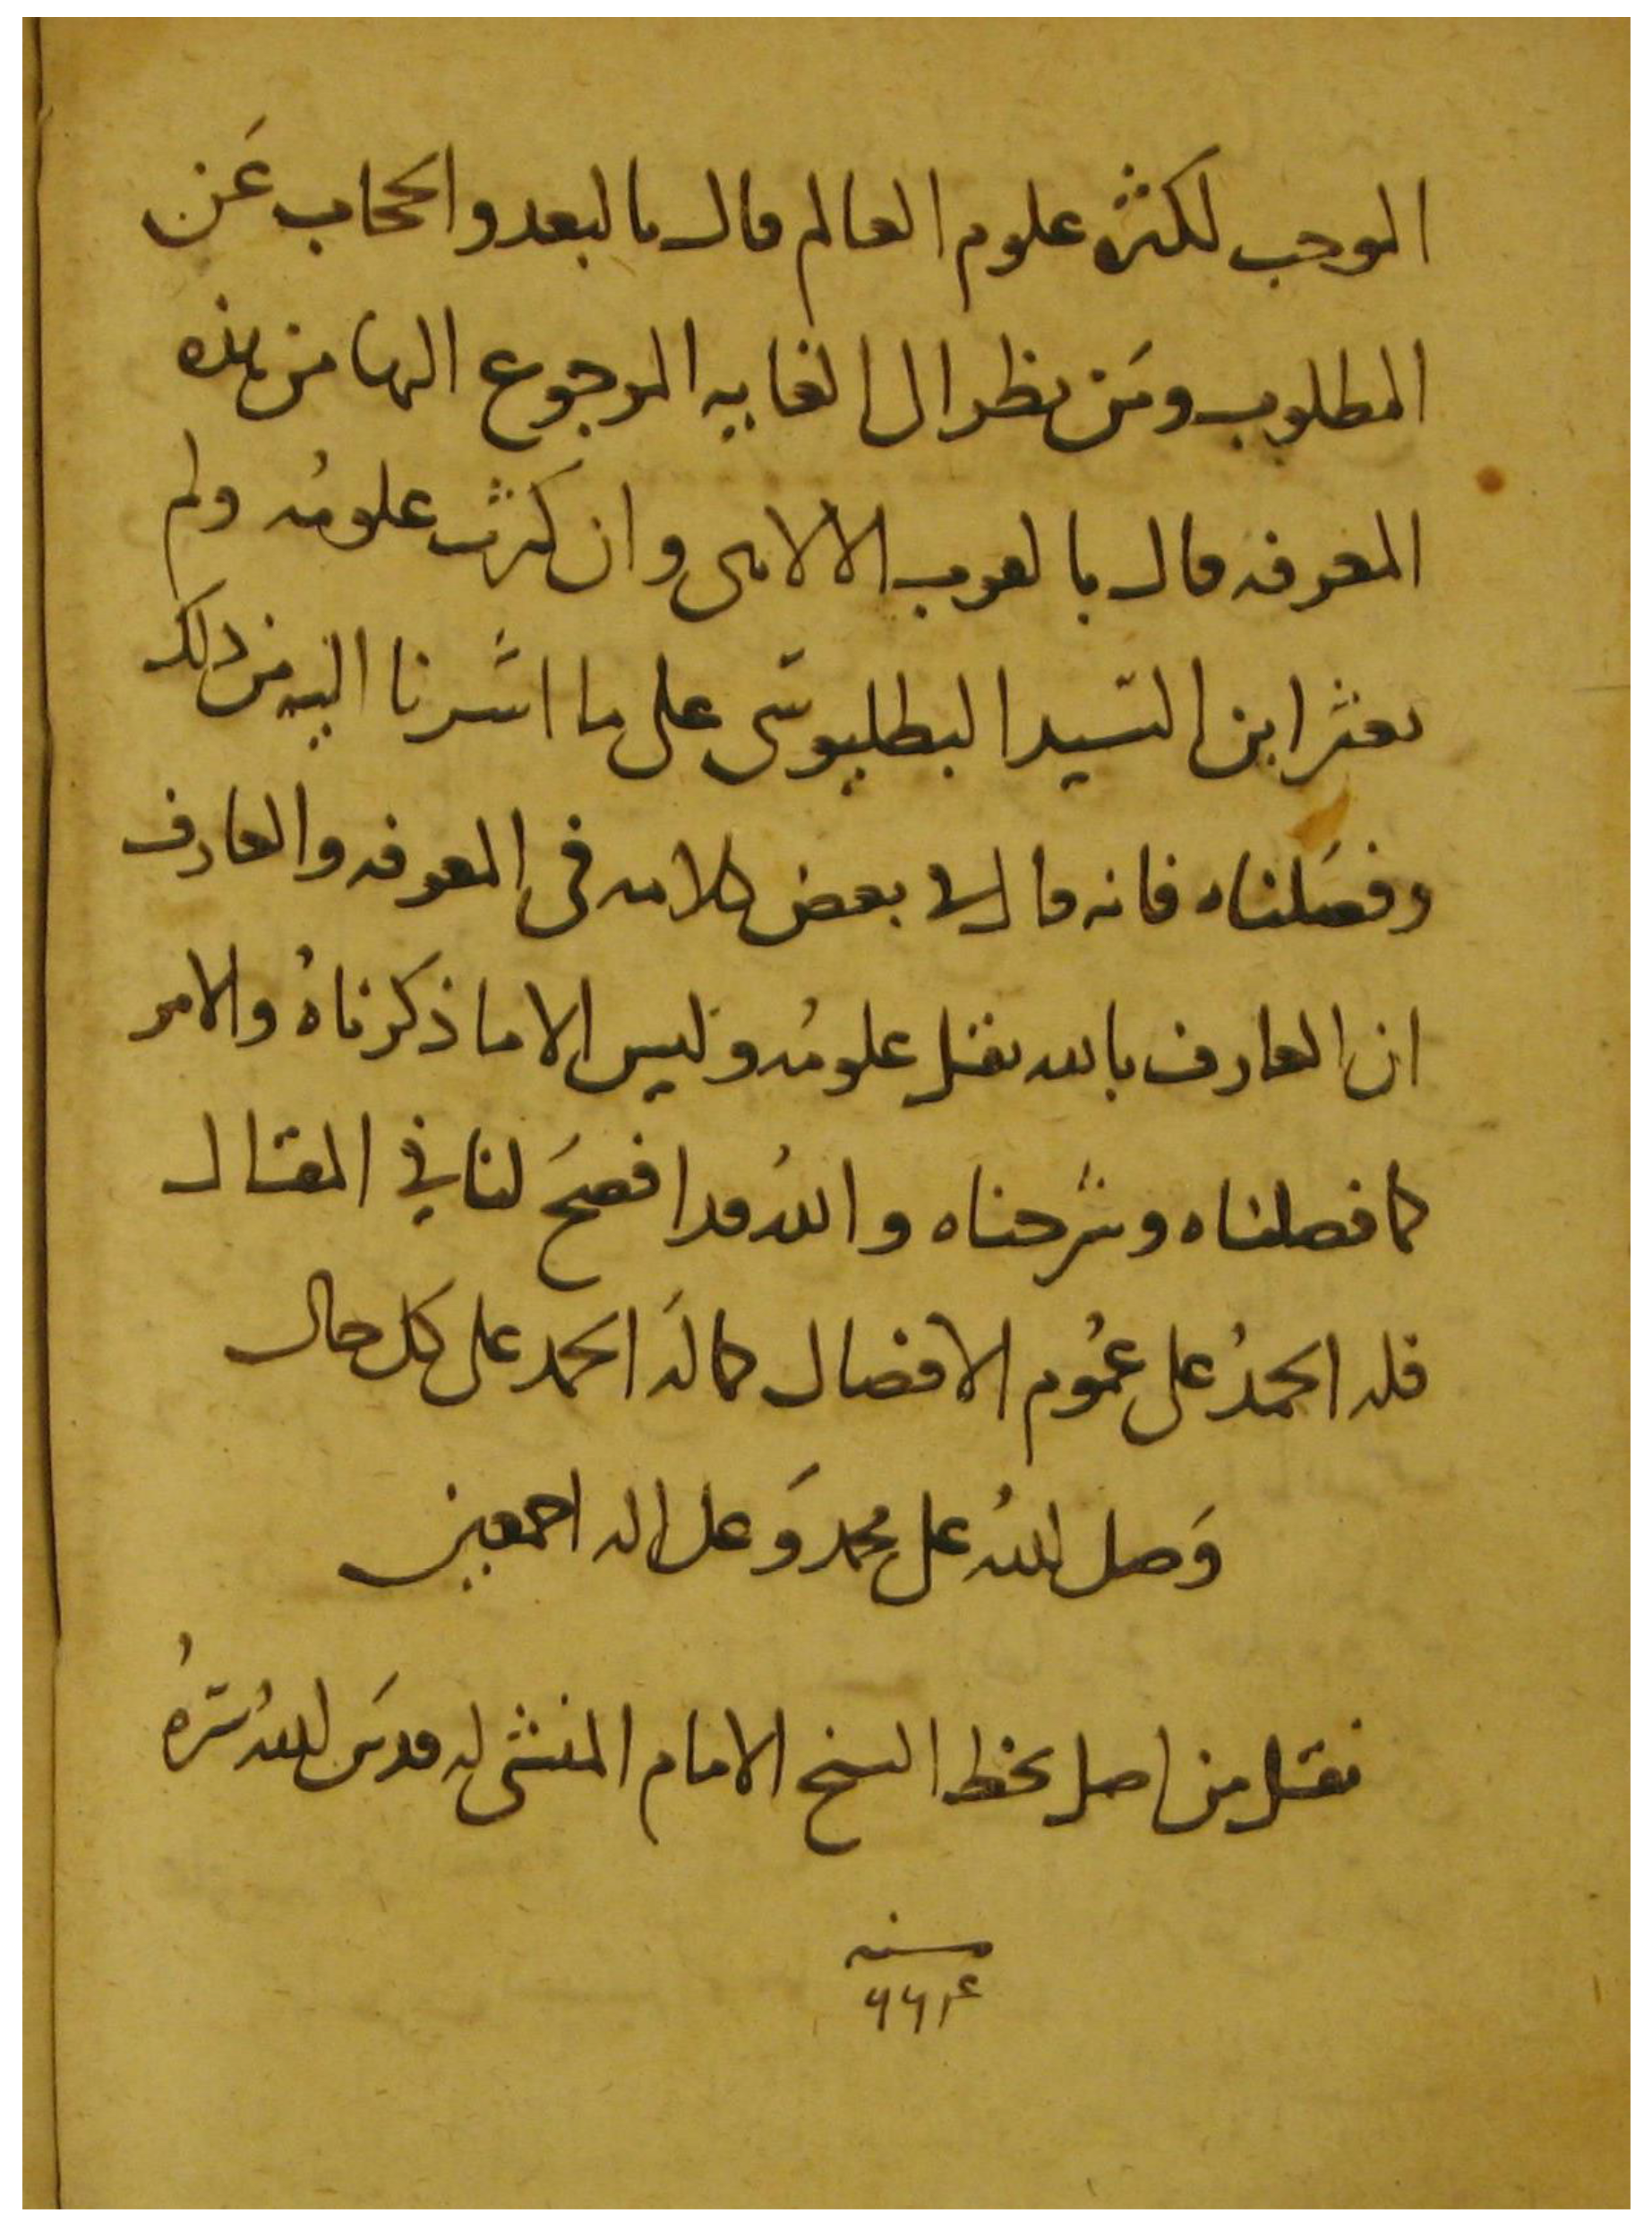 الموجب لكثرة علوم العالم قال بالبعد والحجاب عن
المطلوب ومن نظر الى الغاية المرجوع اليها من هذه
المعرفه قال بالقرب الالاهى وان كثرت علومُه ولم
يعثر ابن السّيد البطليوسى على ما اشرنا اليه من ذلك
وفصَلناه فانه قال فى بعض كلامه فى المعرفه والعارف
ان العارف بالله تقل علومُه وليس الا ما ذكرناهُ والامر
كما فصلناه وشرحناه واللهُ قد افصحَ لنا في المقال
فله الحمدُ على عمُوم الافضال كما لَه الحمد على كل حال
وَصلى اللهُ على محمد وَعلى اله اجمعين
نقل من اصل بخط الشيخ الامام المنشئ له قدسَ اللهُ سرّهُ
سنه